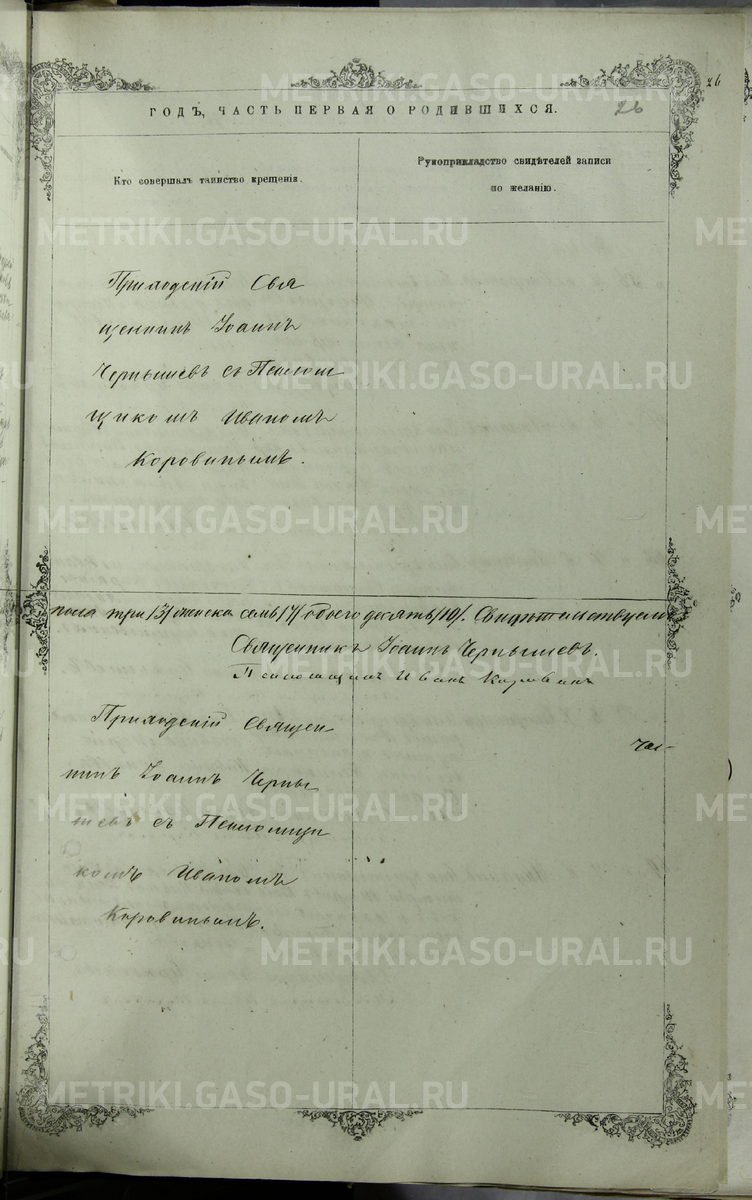 26
ГОДЪ, ЧАСТЬ ПЕРВАЯ О РОДИВШИХСЯ.
26
Кто совершалъ таинство крещенія.
Рукоприкладство свидѣтелей записи
по желанію.
Приходскій Свя
щенникъ Іоаннъ
Чернышевъ съ Псалом
щикомъ Иваномъ
Коровинымъ.
пола три /3/ женска семь /7/ обоего десять /10/. Свидѣтельствуемъ
Священникъ Іоаннъ Чернышевъ.
Псаломщикъ Иванъ Коровинъ
Приходскій Священ
никъ Іоаннъ Черны
шевъ съ Псаломщи
комъ Иваномъ
Коровинымъ.
METRIKI.GASO-URAL.RU